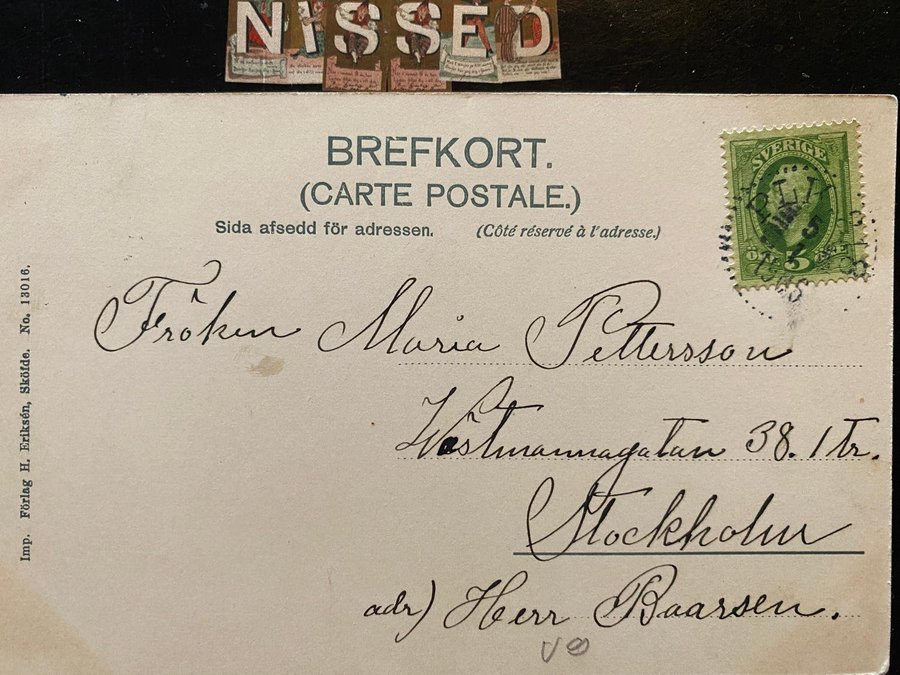 NISSED
BREFKORT.
(CARTE POSTALE.)
Sida afsedd för adressen. (Côté réservé à l'adresse.)
SVERIGE
5
Fröken Maria Pettersson
Westmannagatan 38. 1 tr.
Stockholm
adr) Herr Baarsen.
Imp. Förlag H. Eriksén, Sköfde. No. 13016.